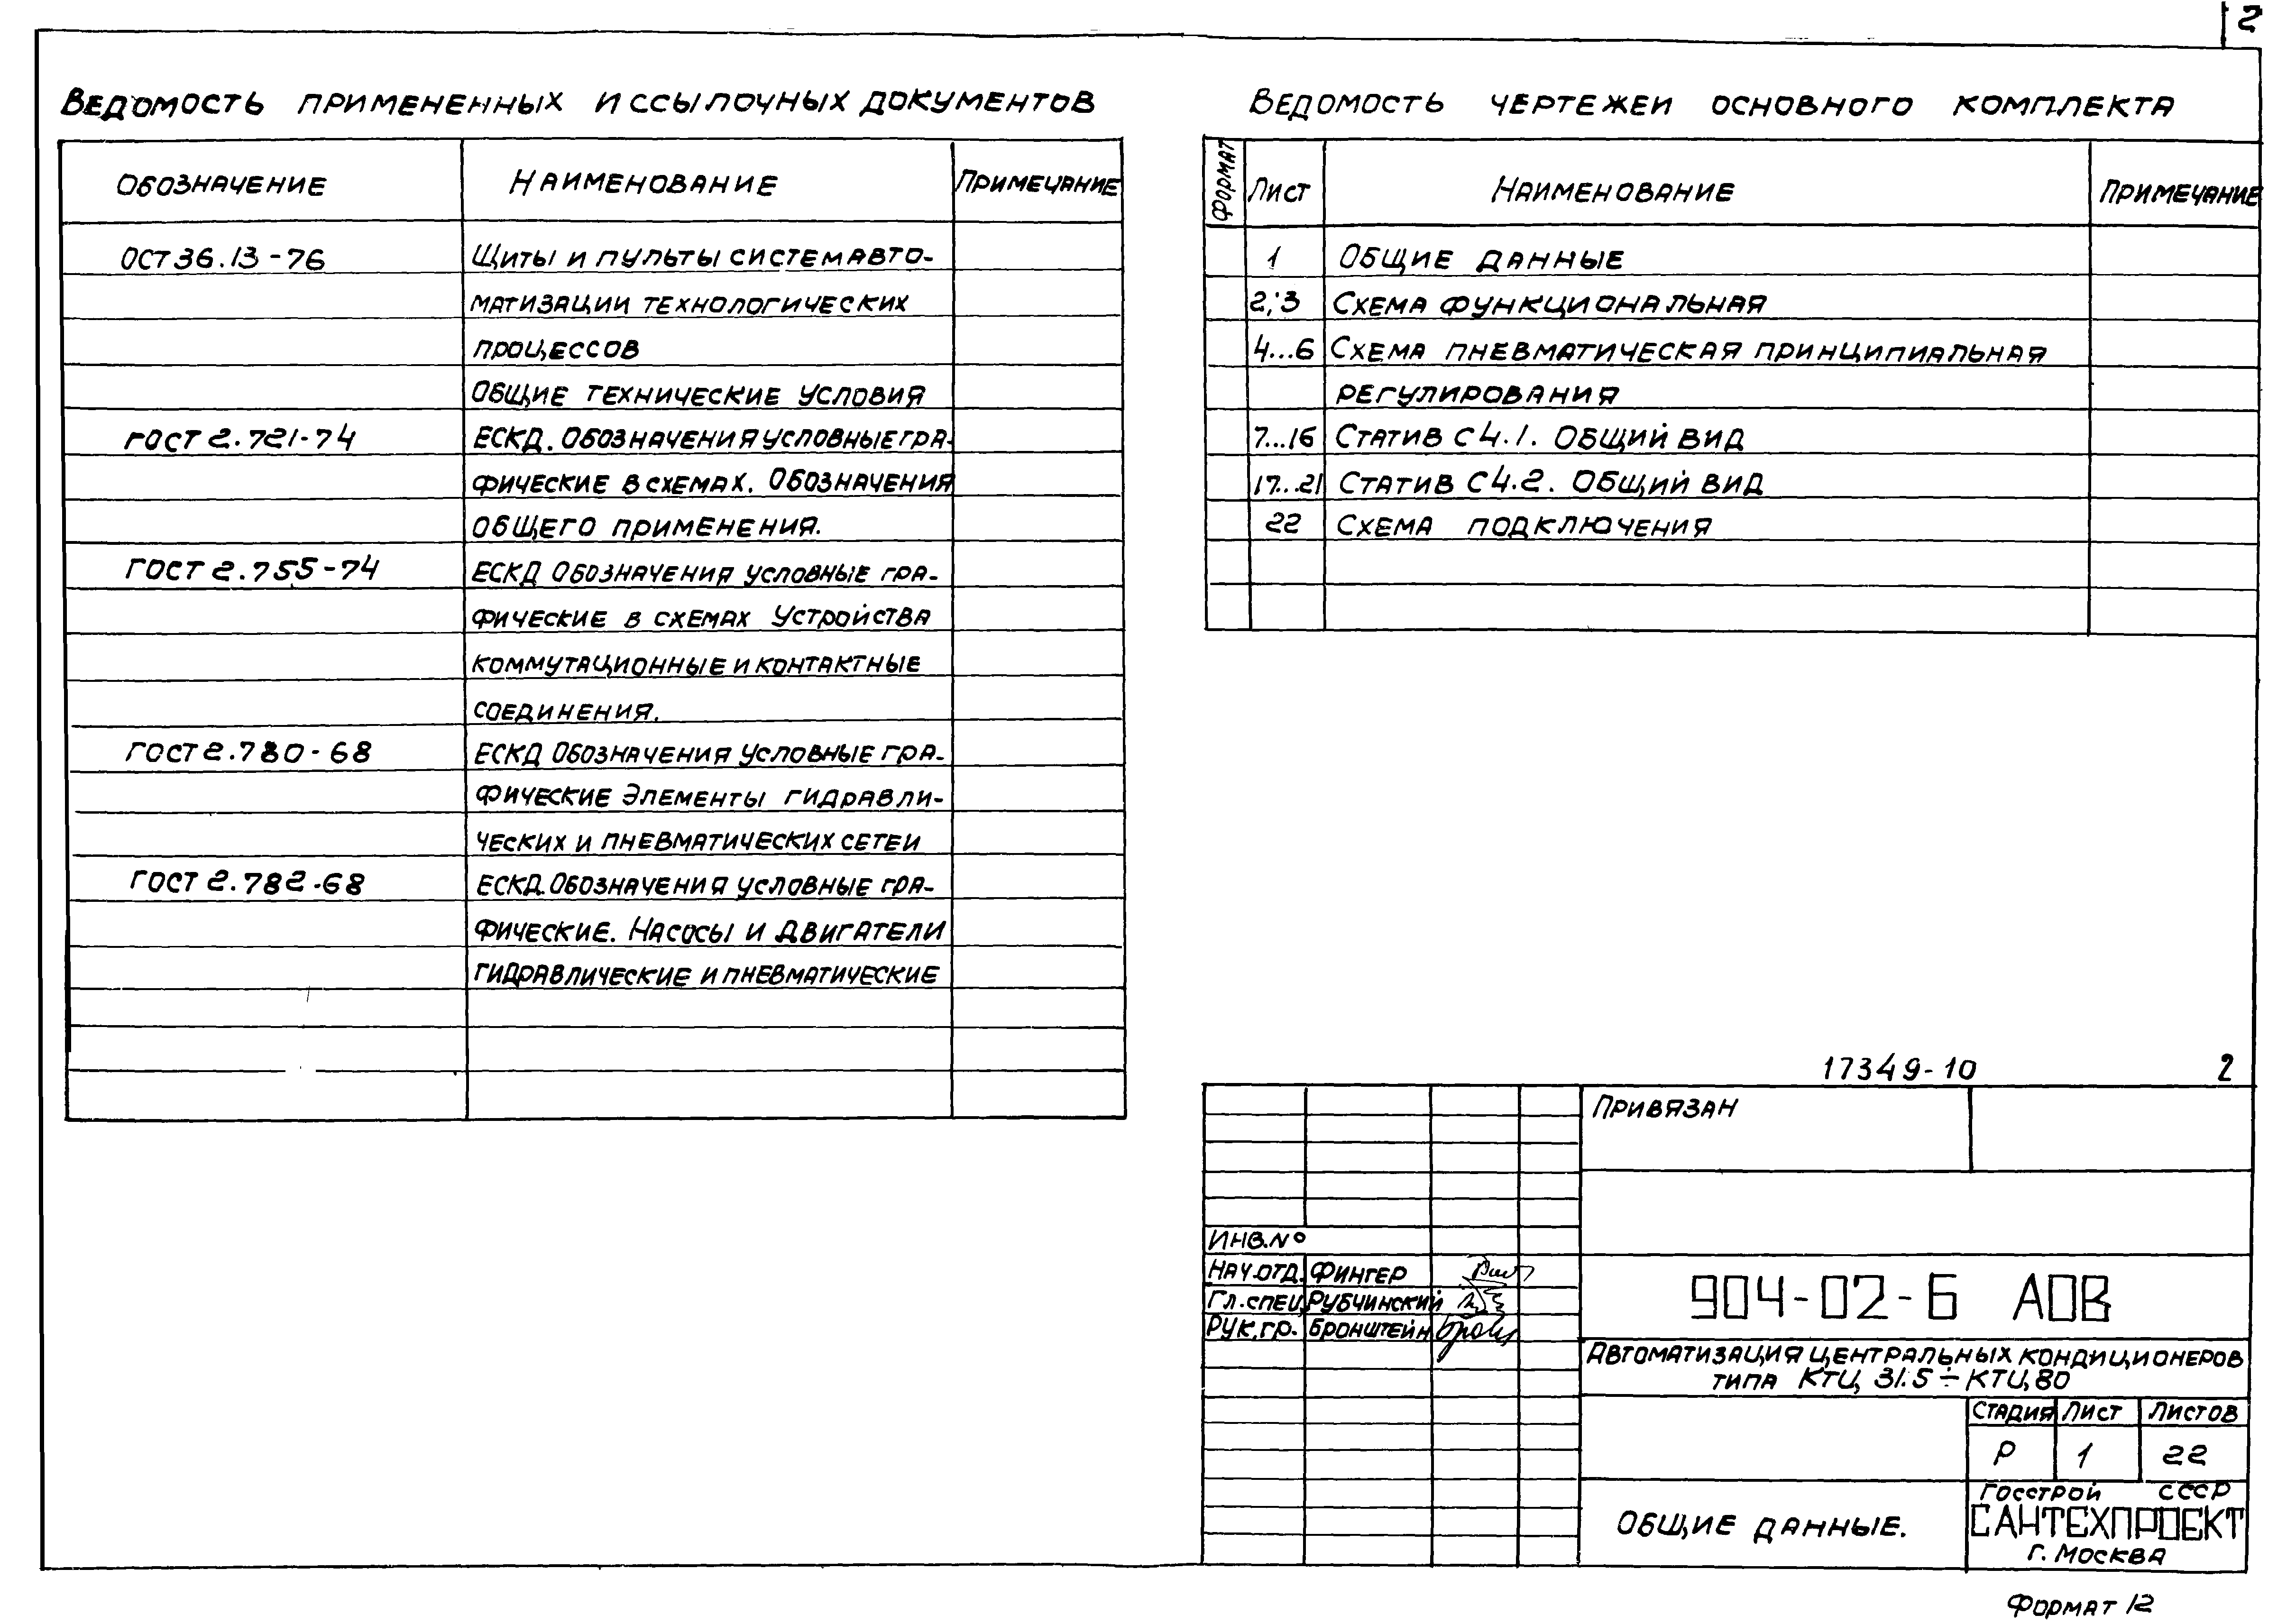 2
Ведомость примененных и ссылочных документов
Обозначение Наименование Примечание
ОСТ 36.13-76 Щиты и пульты систем авто-
матизации технологических
процессов
Общие технические условия
ГОСТ 2.721-74 ЕСКД. Обозначения условные гра-
фические в схемах. Обозначения
общего применения.
ГОСТ 2.755-74 ЕСКД Обозначения условные гра-
фические в схемах Устройства
коммутационные и контактные
соединения.
ГОСТ 2.780-68 ЕСКД Обозначения условные гра-
фические Элементы гидравли-
ческих и пневматических сетей
ГОСТ 2.782-68 ЕСКД. Обозначения условные гра-
фические. Насосы и двигатели
гидравлические и пневматические
Ведомость чертежей основного комплекта
Формат Лист Наименование Примечание
1 Общие данные
2; 3 Схема функциональная
4...6 Схема пневматическая принципиальная
регулирования
7...16 Статив С4.1. Общий вид
17...21 Статив С4.2. Общий вид
22 Схема подключения
17349-10 2
Привязан
Инв. №
Нач. отд. Фингер
Гл. спец. Рубчинский
Рук. гр. Бронштейн
904-02-6 АОВ
Автоматизация центральных кондиционеров
типа КТЦ 31.5 ÷ КТЦ 80
Стадия Лист Листов
Р 1 22
Общие данные.
Госстрой СССР
САНТЕХПРОЕКТ
г. Москва
Формат 12